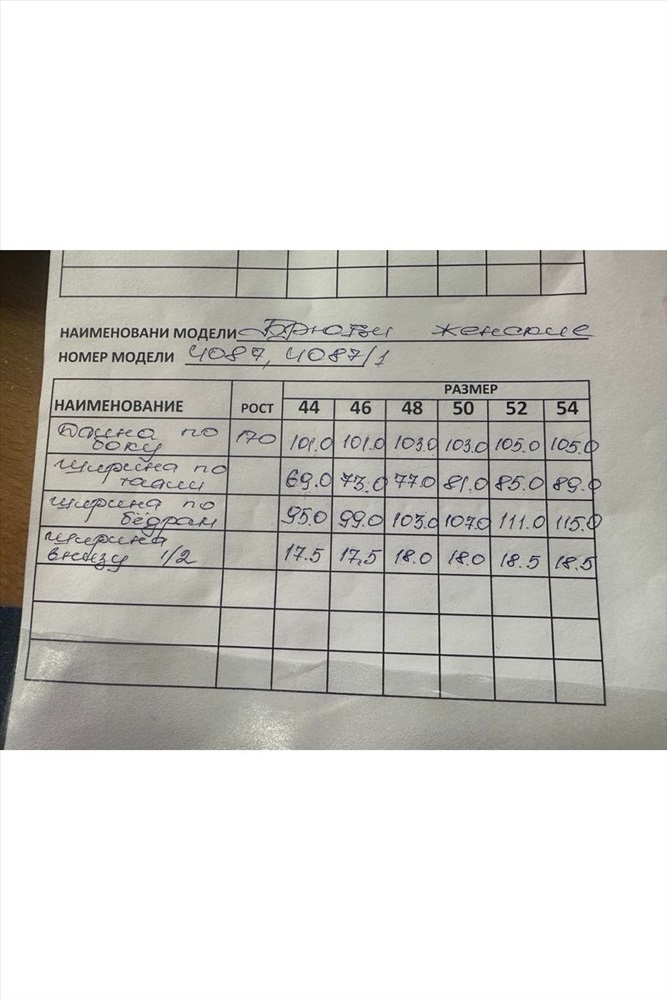 НАИМЕНОВАНИ МОДЕЛИ Брюты женские
НОМЕР МОДЕЛИ 4087, 4087/1
НАИМЕНОВАНИЕ РОСТ РАЗМЕР
44 46 48 50 52 54
Длина по боку 170 101.0 101.0 103.0 103.0 105.0 105.0
ширина по талии 69.0 73.0 77.0 81.0 85.0 89.0
ширина по бёдрам 95.0 99.0 103.0 107.0 111.0 115.0
ширина внизу 1/2 17.5 17.5 18.0 18.0 18.5 18.5